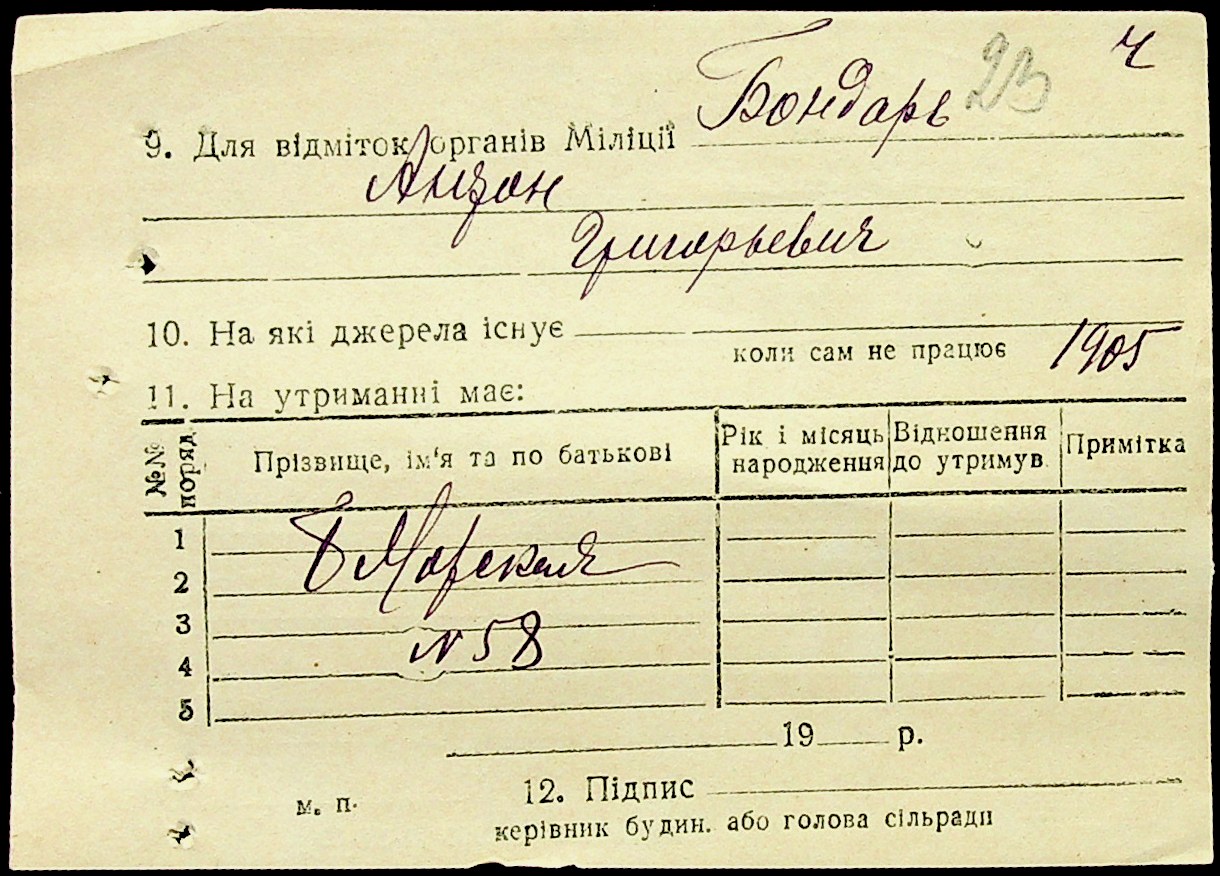 23 ч
Бондарь
9. Для відміток органів Міліції
Антон
Григорьевич
10. На які джерела існує
коли сам не працює 1905
11. На утриманні має:
№№ поряд. Прізвище, ім'я та по батькові Рік і місяць народження Відношення до утримув. Примітка
1
Б Морская
2
3
N 58
4
5
19 р.
м. п. 12. Підпис
керівник будин. або голова сільради